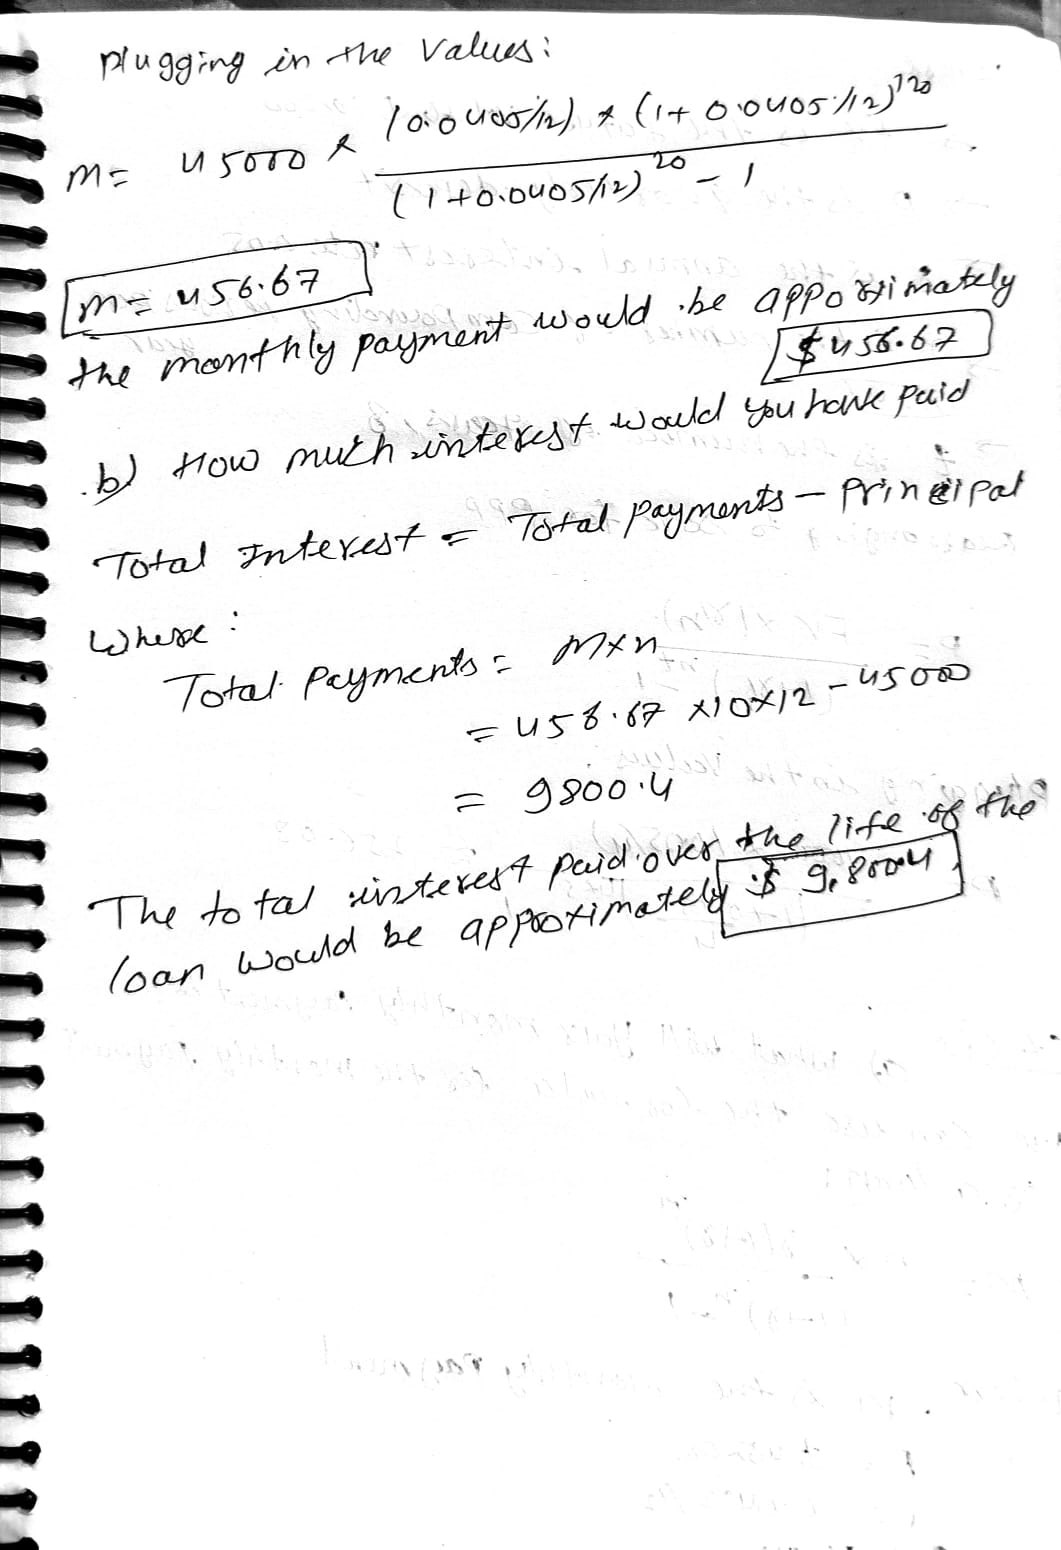 Plugging in the values:
M = 45000 * (0.0405/12) * (1+0.0405/12)^120
(1+0.0405/12)^20 - 1
M = 456.67
the monthly payment would be appoximately
$456.67
b) How much interest would you have paid
Total Interest = Total payments - Principal
Where:
Total Payments = M×n
= 456.67 ×10×12 - 45000
= 9800.4
The total interest paid over the life of the
loan would be approximately $ 9,800.4